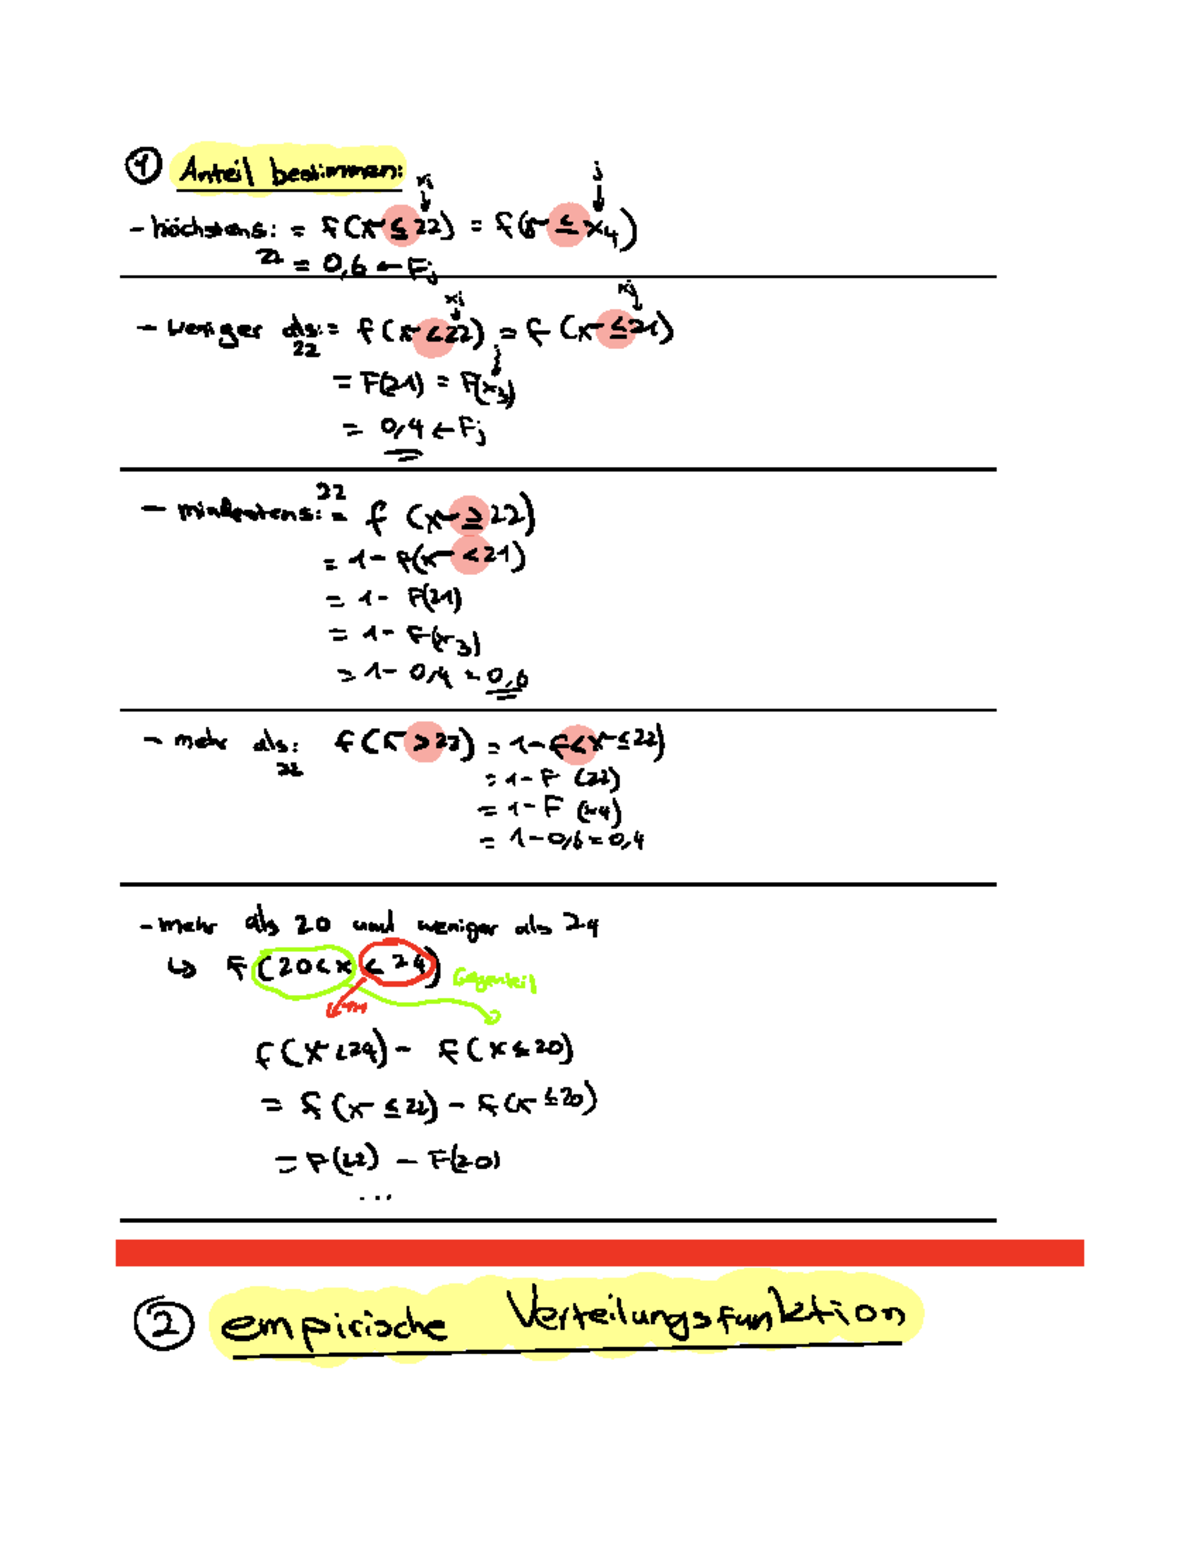 ① Anteil bestimmen:
xj j
- höchstens: = f(x ≤ 22) = f(x ≤ x4)
22 = 0,6 ← Fj
xj xj
- weniger als: = f(x < 22) = f(x ≤ 21)
22 j
= F(21) = F(x3)
= 0,4 ← Fj
22
- mindestens: = f (x ≥ 22)
= 1 - f(x < 21)
= 1 - F(21)
= 1 - F(x3)
= 1 - 0,4 = 0,6
- mehr als: f(x > 22) = 1 - f(x ≤ 22)
22
= 1 - F (22)
= 1 - F (x4)
= 1 - 0,6 = 0,4
- mehr als 20 und weniger als 24
↳ f (20 < x < 24) Gegenteil
f(x < 24) - f(x ≤ 20)
= f(x ≤ 22) - f(x ≤ 20)
= F(22) - F(20)
...
② empirische Verteilungsfunktion